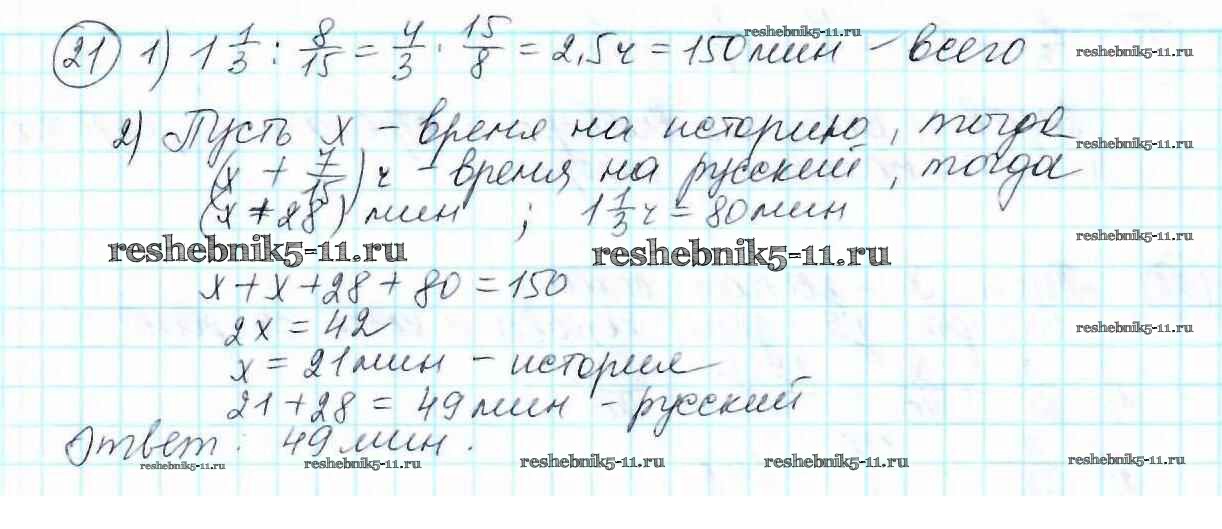 reshebnik5-11.ru
21 1) 1 1/3 : 8/15 = 4/3 · 15/8 = 2,5ч = 150мин – всего
reshebnik5-11.ru
2) Пусть x – время на историю, тогда
reshebnik5-11.ru
(x + 7/15) ч – время на русский, тогда
(x + 28) мин ; 1 1/3 ч = 80мин
reshebnik5-11.ru
reshebnik5-11.ru reshebnik5-11.ru
x + x + 28 + 80 = 150
2x = 42
reshebnik5-11.ru
x = 21мин – история
21 + 28 = 49мин – русский
Ответ: 49мин.
reshebnik5-11.ru reshebnik5-11.ru reshebnik5-11.ru reshebnik5-11.ru reshebnik5-11.ru